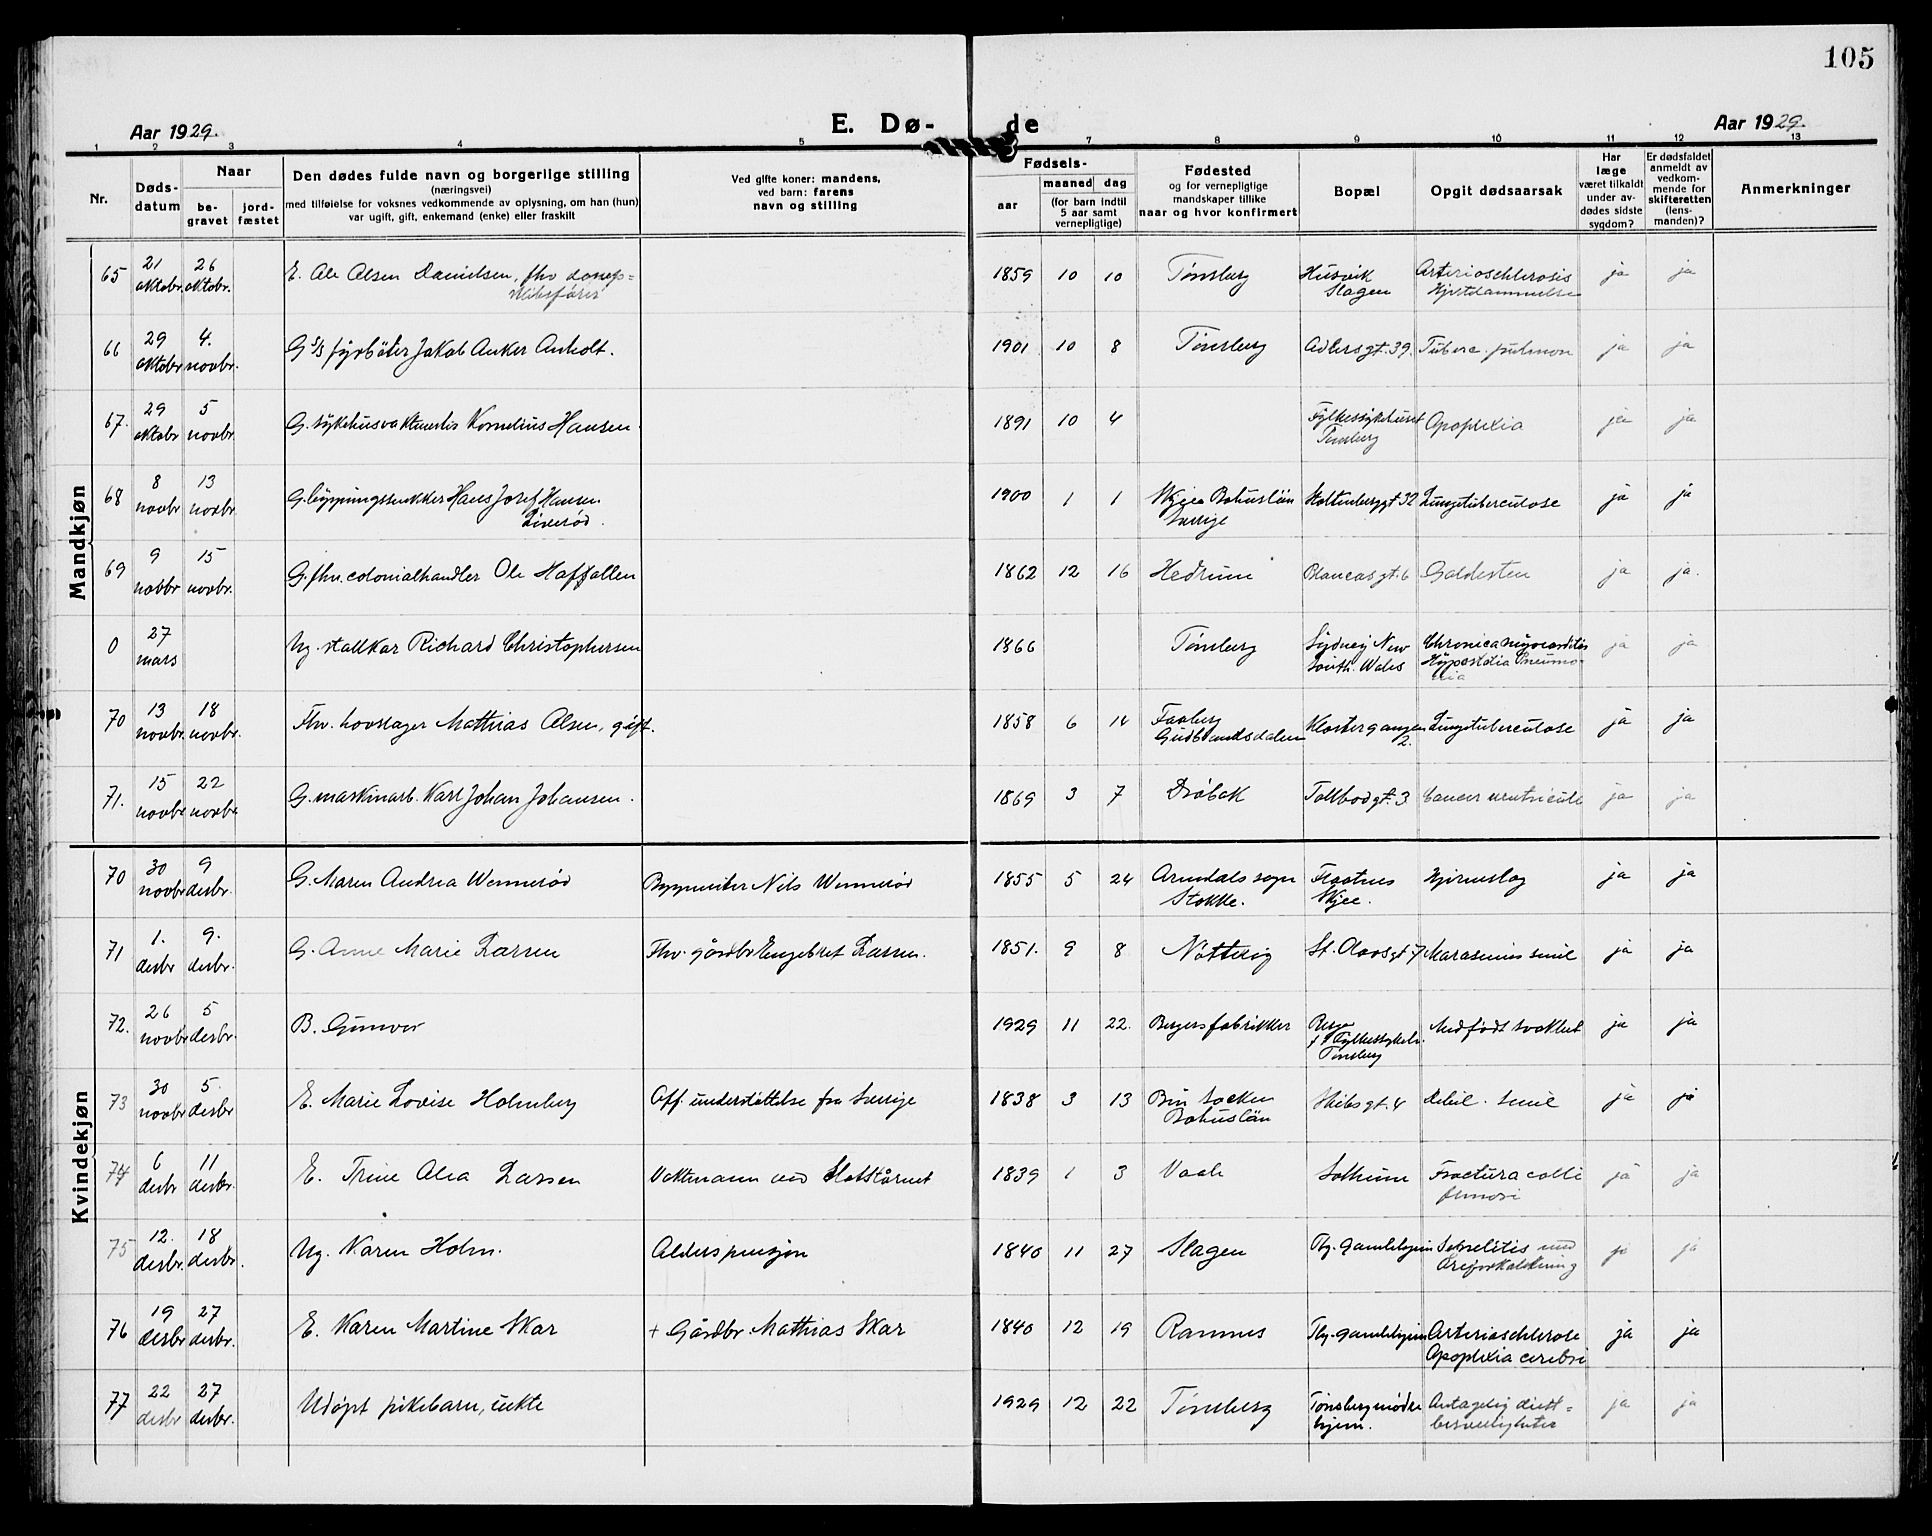 105
Aar 1929.
E. Dø-
de
Aar 1929.
1 2 3 4 5 7 8 9 10 11 12 13
Nr.
Døds-
datum
Naar
be-
gravet
jord-
fæstet
Den dødes fulde navn og borgerlige stilling
(næringsvei)
med tilføielse for voksnes vedkommende av oplysning, om han (hun)
var ugift, gift, enkemand (enke) eller fraskilt
Ved gifte koner: mandens,
ved barn: farens
navn og stilling
Fødsels-
aar
maaned dag
(for barn indtil
5 aar samt
vernepligtige)
Fødested
og for vernepligtige
mandskaper tillike
naar og hvor konfirmert
Bopæl
Opgit dødsaarsak
Har
læge
været tilkaldt
under av-
dødes sidste
sygdom?
Er dødsfaldet
anmeldt av
vedkom-
mende for
skifteretten
(lens-
manden)?
Anmerkninger
Mandkjøn
65 21 oktobr. 26 oktobr. E. Ole Olsen Danielsen, fhv. 1859 10 10 Tønsberg Husvik Slagen Arterioschlerosis Hjertelammelse ja ja
66 29 oktobr 4. novbr. G. s/s fyrbøter Jakob Anker Anholt. 1901 10 8 Tønsberg Adlersgt. 39. Huberc. pulmon ja ja
67. 29 oktobr 5 novbr. G. sykehusvaktmester Kornelius Hansen. 1891 10 4 Fylkessykehuset Tønsberg Apoplexia ja ja
68 8 novbr 13 novbr. G. bygningssnekker Hans Josef Hansen Liverød. 1900 1 1 Skjee Bohuslän Sverige Stoltenberggt 32 Lungetuberculose ja ja
69 9 novbr 15 novbr. G. fhv. colonialhandler Ole Haffallen 1862 12 16 Hedrum gt. 6 Galdesten ja ja.
0 27 mars Ug. stallkar Richard Christophersen 1866 Tønsberg Sydney New South. Wales Chronica myocarditis Hypostatia Pneumonia ja ja
70 13 novbr. 18 novbr. Fhv. hovslager Mathias Olsen, gift. 1858 6 14 Faaberg Gudbrandsdalen Klostergangen 2. Lungetuberculose ja ja
71. 15 novbr 22 novbr G. maskinarb. Karl Johan Johansen. 1869 3 7 Drøbak Tollbodgt. 3 Cancer ventriculi ja ja
Kvindekjøn
70 30 novbr 9 desbr. G. Maren Andrea Wennerød Byggmester Nils Wennerød 1855 5 24 Arendals sogn Stokke. Skjee. Hjerneslag ja ja
71 1. desbr 9. desbr. G. Anne Marie Larsen Fhv. gårdbr Engebret Larsen. 1851. 9 8 Nøtterøy St. Olavsgt 7 Marasmus senil ja ja
72. 26 novbr 5 desbr. B. Gunvor 1929 11 22. Bergersfabrikker Berger f. t. Fylkessykeh. Tønsberg Medfødt svakhet ja ja
73 30 novbr 5. desbr E. Marie Lovise Holmberg Off. understøttelse fra Sverige 1838 3 13 Socken Bohuslän Skibsgt. 4 Debil. senil ja ja
74 6 desbr 11 desbr. E. Trine Olea Larsen Vaktmann ved Slotstårnet 1839 1 3 Vaale Solheim Fractura colli femori ja ja
75 12. desbr. 18 desbr. Ug. Karen Holm. Alderspensjon 1840 11 27 Slagen Tbg. Gamlehjem med Åreforkalkning ja ja
76 19 desbr 27 desbr. E. Karen Martine Skar + Gårdbr. Mathias Skar 1840 12 19 Ramnes Tbg. gamlehjem Arterioschlerose Apoplexia cerebri ja ja
77 22 desbr 27 desbr. Udøpt pikebarn, uekte 1929 12 22 Tønsberg Tønsberg mødrehjem. Antagelig diettbesværligheter ja ja